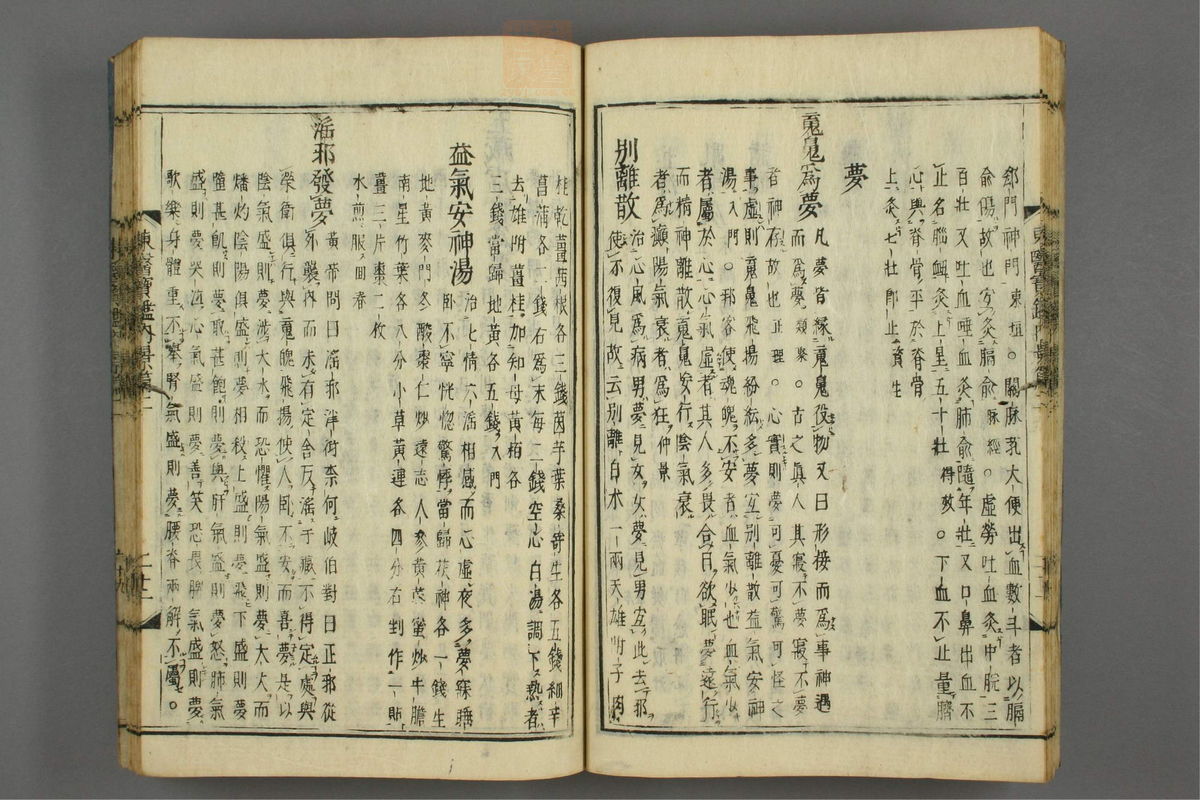 郄門神門東垣○關脉芤大便出血數斗者以膈
俞傷故也宜灸膈俞脉經○虛勞吐血灸中脘三
百壯又吐血唾血灸肺俞隨年壯又口鼻出血不
止名腦衄灸上星五十壯得效○下血不止量臍
心與脊骨平於脊骨
上灸七壯即止資生
夢
魂魄爲夢凡夢皆緣魂魄役物又曰形接而爲事神遇
而爲夢類聚○古之眞人其寢不夢寢不夢
者神存故也正理○心實則夢可憂可驚可怪之
事虛則魂魄飛揚紛紜多夢宜別離散益氣安神
湯入門○邪客使魂魄不安者血氣少也血氣少
者屬於心心氣虛者其人多畏合目欲眠夢遠行
而精神離散魂魄妄行陰氣衰
者爲癲陽氣衰者爲狂仲景
別離散治心風爲病男夢見女女夢見男宜此去邪
使不復見故云別離白朮一兩天雄附子肉
桂乾薑茜根各三錢茵芋葉桑寄生各五錢細辛
菖蒲各二錢右爲末每二錢空心白湯調下熱者
去雄附薑桂加知母黃栢各
三錢當歸地黃各五錢入門
益氣安神湯治七情六淫相感而心虛夜多夢寐睡
臥不寧恍惚驚悸當歸茯神各一錢生
地黃麥門冬酸棗仁炒遠志人參黃芪蜜炒牛膽
南星竹葉各八分小草黃連各四分右剉作一貼
薑三片棗二枚
水煎服回春
淫邪發夢黃帝問曰淫邪泮衍奈何岐伯對曰正邪從
外襲內而未有定舍反淫于藏不得定處與
榮衛俱行與魂魄飛揚使人臥不安而喜夢是以
陰氣盛則夢涉大水而恐懼陽氣盛則夢大火而
燔灼陰陽俱盛則夢相殺上盛則夢飛下盛則夢
墮甚飢則夢取甚飽則夢與肝氣盛則夢怒肺氣
盛則夢哭泣心氣盛則夢善笑恐畏脾氣盛則夢
歌樂身體重不擧腎氣盛則夢腰脊兩解不屬○